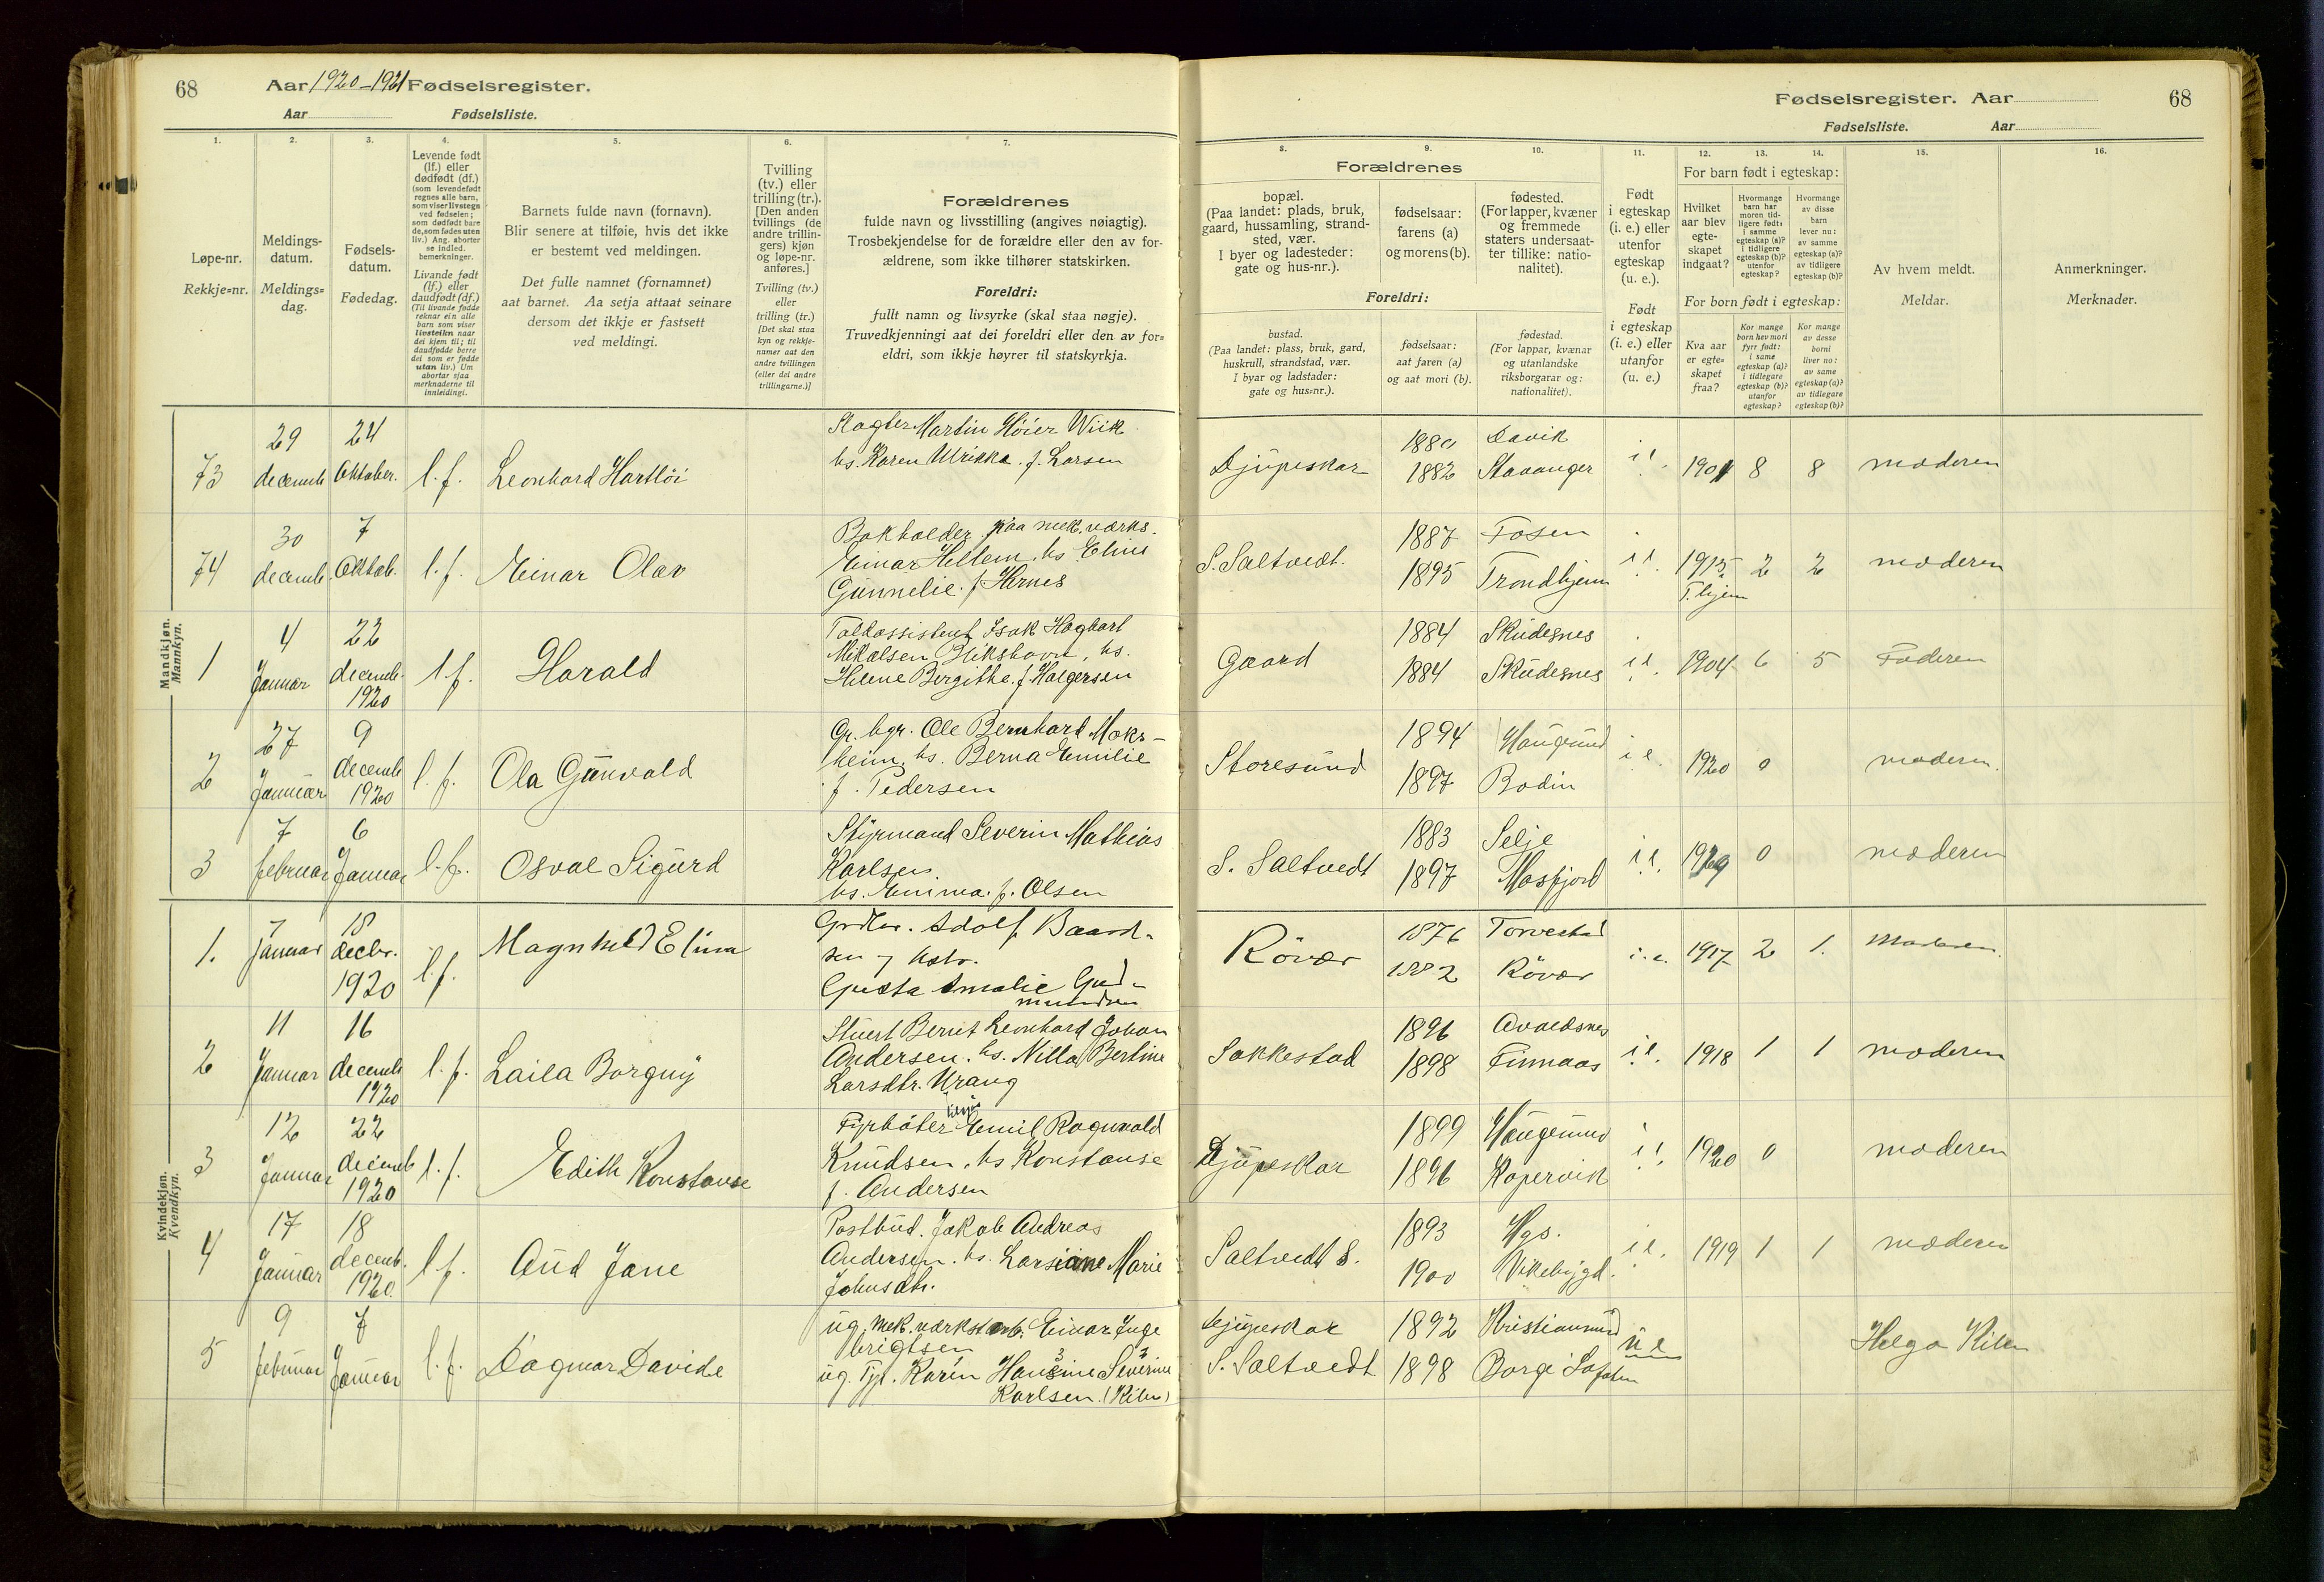 68
Aar 1920-1921 Fødselsregister.
Aar Fødselsliste.
1. 2. 3. 4. 5. 6. 7.
Løpe-nr.
Rekkje=nr.
Meldings-
datum.
Meldings=
dag.
Fødsels-
datum.
Fødedag.
Levende født
(lf.) eller
dødfødt (df.)
(som levendefødt
regnes alle barn,
som viser livstegn
ved fødselen;
som dødfødt bare
de, som fødes uten
liv.) Ang. aborter
se indled.
bemerkninger.
Livande født
(lf.) eller
daudfødt (df.)
(Til livande fødde
reknar ein alle
barn som viser
livsteikn naar
dei kjem til; til
daudfødde berre
dei som er fødde
utan liv.) Um
abortar sjaa
merknaderne til
innleidingi.
Barnets fulde navn (fornavn).
Blir senere at tilføie, hvis det ikke
er bestemt ved meldingen.
Det fulle namnet (fornamnet)
aat barnet. Aa setja attaat seinare
dersom det ikkje er fastsett
ved meldingi.
Tvilling
(tv.) eller
trilling (tr.).
[Den anden
tvillings (de
andre trillin-
gers) kjøn
og løpe-nr.
anføres.]
Tvilling (tv.)
eller
trilling (tr.)
[Det skal staa
kyn og rekkje-
numer aat den
andre tvillingen
(eller dei andre
trillingarne.)]
Forældrenes
fulde navn og livsstilling (angives nøiagtig).
Trosbekjendelse for de forældre eller den av for-
ældrene, som ikke tilhører statskirken.
Foreldri:
fullt namn og livsyrke (skal staa nøgje).
Truvedkjenningi aat dei foreldri eller den av for=
eldri, som ikkje høyrer til statskyrkja.
Mandkjøn.
Mannkyn.
73
29
decemb
24
Oktober.
l.f.
Leonhard Hartløi
Slagter Martin Höier Wiik
hs. Karen Ulrikke. f. Larsen
74
30
decemb.
7
Oktob.
l.f.
Einar Olav
Bokholder paa mek. værks.
Einar Hellem. hs Eline
Gunnelie. f. Hernes
1
4
Januar
22
decemb.
1920
l.f.
Harald
Toldassistent Isak Hagbart
Mikalsen Vikshavn, hs.
Helene Bergithe. f. Holgersen
2
27
Januar
9
decemb
1920
l.f.
Ola Gunvald
Gr. bgr. Ole Bernhard Moks-
heim. hs. Berna Emilie
f. Pedersen
3
7
februar
6
Januar
l.f.
Osval Sigurd
Styrmand Severin Mathias
Karlsen
hs. Emma. f. Olsen
Kvindekjøn.
Kvendkyn.
1.
7
januar
18
decbr.
1920
l.f.
Magnhild Elina
Adolf Baard-
sen
Amalie Gud-
mundsen
2
11
Januar
16
decemb
1920
l.f.
Laila Borgny
Stuert Bernt Leonhard Johan
Andersen. hs. Nilla Bertine
Larsdtr. Vrang
3
12
Januar
22
decemb
1920
l.f.
Edith Konstanse
Fyrbøter Emil Ragnvald
Knudsen. hs Konstanse
f. Andersen
4
17
Januar
18
decemb.
1920.
l.f.
Aud Jane
Postbud. Jakob Andreas
Andersen. hs. Larsine Marie
Johnsdtr.
5
9
februar
7
Januar
l.f.
Dagmar Davide
ug. mek. værkst. arb. Einar Inge
brigtsen
ug. Tj. Karen Hansine Severine
Karlsen. (Kilen)
Fødselsregister. Aar
68
Fødselsliste. Aar
8. 9. 10. 11. 12. 13. 14. 15. 16.
Forældrenes
bopæl.
(Paa landet: plads, bruk,
gaard, hussamling, strand-
sted, vær.
I byer og ladesteder:
gate og hus-nr.).
fødselsaar:
farens (a)
og morens (b).
fødested.
(For lapper, kvæner
og fremmede
staters undersaat-
ter tillike: natio-
nalitet).
Foreldri:
bustad.
(Paa landet: plass, bruk, gard,
huskrull, strandstad, vær.
I byar og ladstader:
gate og hus=nr.).
fødselsaar:
aat faren (a)
og aat mori (b).
fødestad.
(For lappar, kvænar
og utanlandske
riksborgarar og:
nationalitet).
Født
i egteskap
(i. e.) eller
utenfor
egteskap
(u. e.).
Født
i egteskap
(i. e.) eller
utanfor
(u. e.)
For barn født i egteskap:
Hvilket
aar blev
egte-
skapet
indgaat?
Hvormange
barn har
moren tid-
ligere født:
i samme
egteskap (a)?
i tidligere
egteskap (b)?
utenfor
egteskap?
Hvormange
av disse
barn
lever nu:
av samme
egteskap (a)?
av tidligere
egteskap (b)?
For born født i egteskap:
Kva aar
er egte=
skapet
fraa?
Kor mange
born hev mori
fyrr født:
i same
egteskap (a)?
i tidlegare
egteskap (b)?
utanfor
egteskap?
Kor mange
av desse
borni
liver no:
av same
egteskap (a)?
av tidlegare
egteskap (b)?
Av hvem meldt.
Meldar.
Anmerkninger.
Merknader.
Djupeskar
1880
1882
Davik
Stavanger
i e.
1901
8
8
moderen
S. Saltvedt.
1887
1895
Fosen
Trondhjem
i e.
1915
T.hjem
2
2
moderen
Gaard
1884
1884
Skudesnes
Skudesnes
i e.
1904
6
5
Faderen
Storesund
1894
1897
Haugesund
Bodin
i e.
1920
0
moderen.
S. Saltvedt
1883
1897
Selje
Masfjord
i e.
0
moderen
Røvær
1876
1882
Torvestad
Røvær
i. e.
1917
2
1.
Moderen.
Sakkestad
1896
1898
Avaldsnes
Finnaas
i e.
1918
1
1
moderen
Djupeskar
1899
1896
Haugesund
Kopervik
i e.
1920
0
moderen
Saltvedt S.
1893
1900
Hgs.
Vikebygd.
i e.
1919
1
1
moderen
Djupeskar
S. Saltvedt
1892
1898
Kristiansund
Borge Lofoten
u e
Helga Kilen